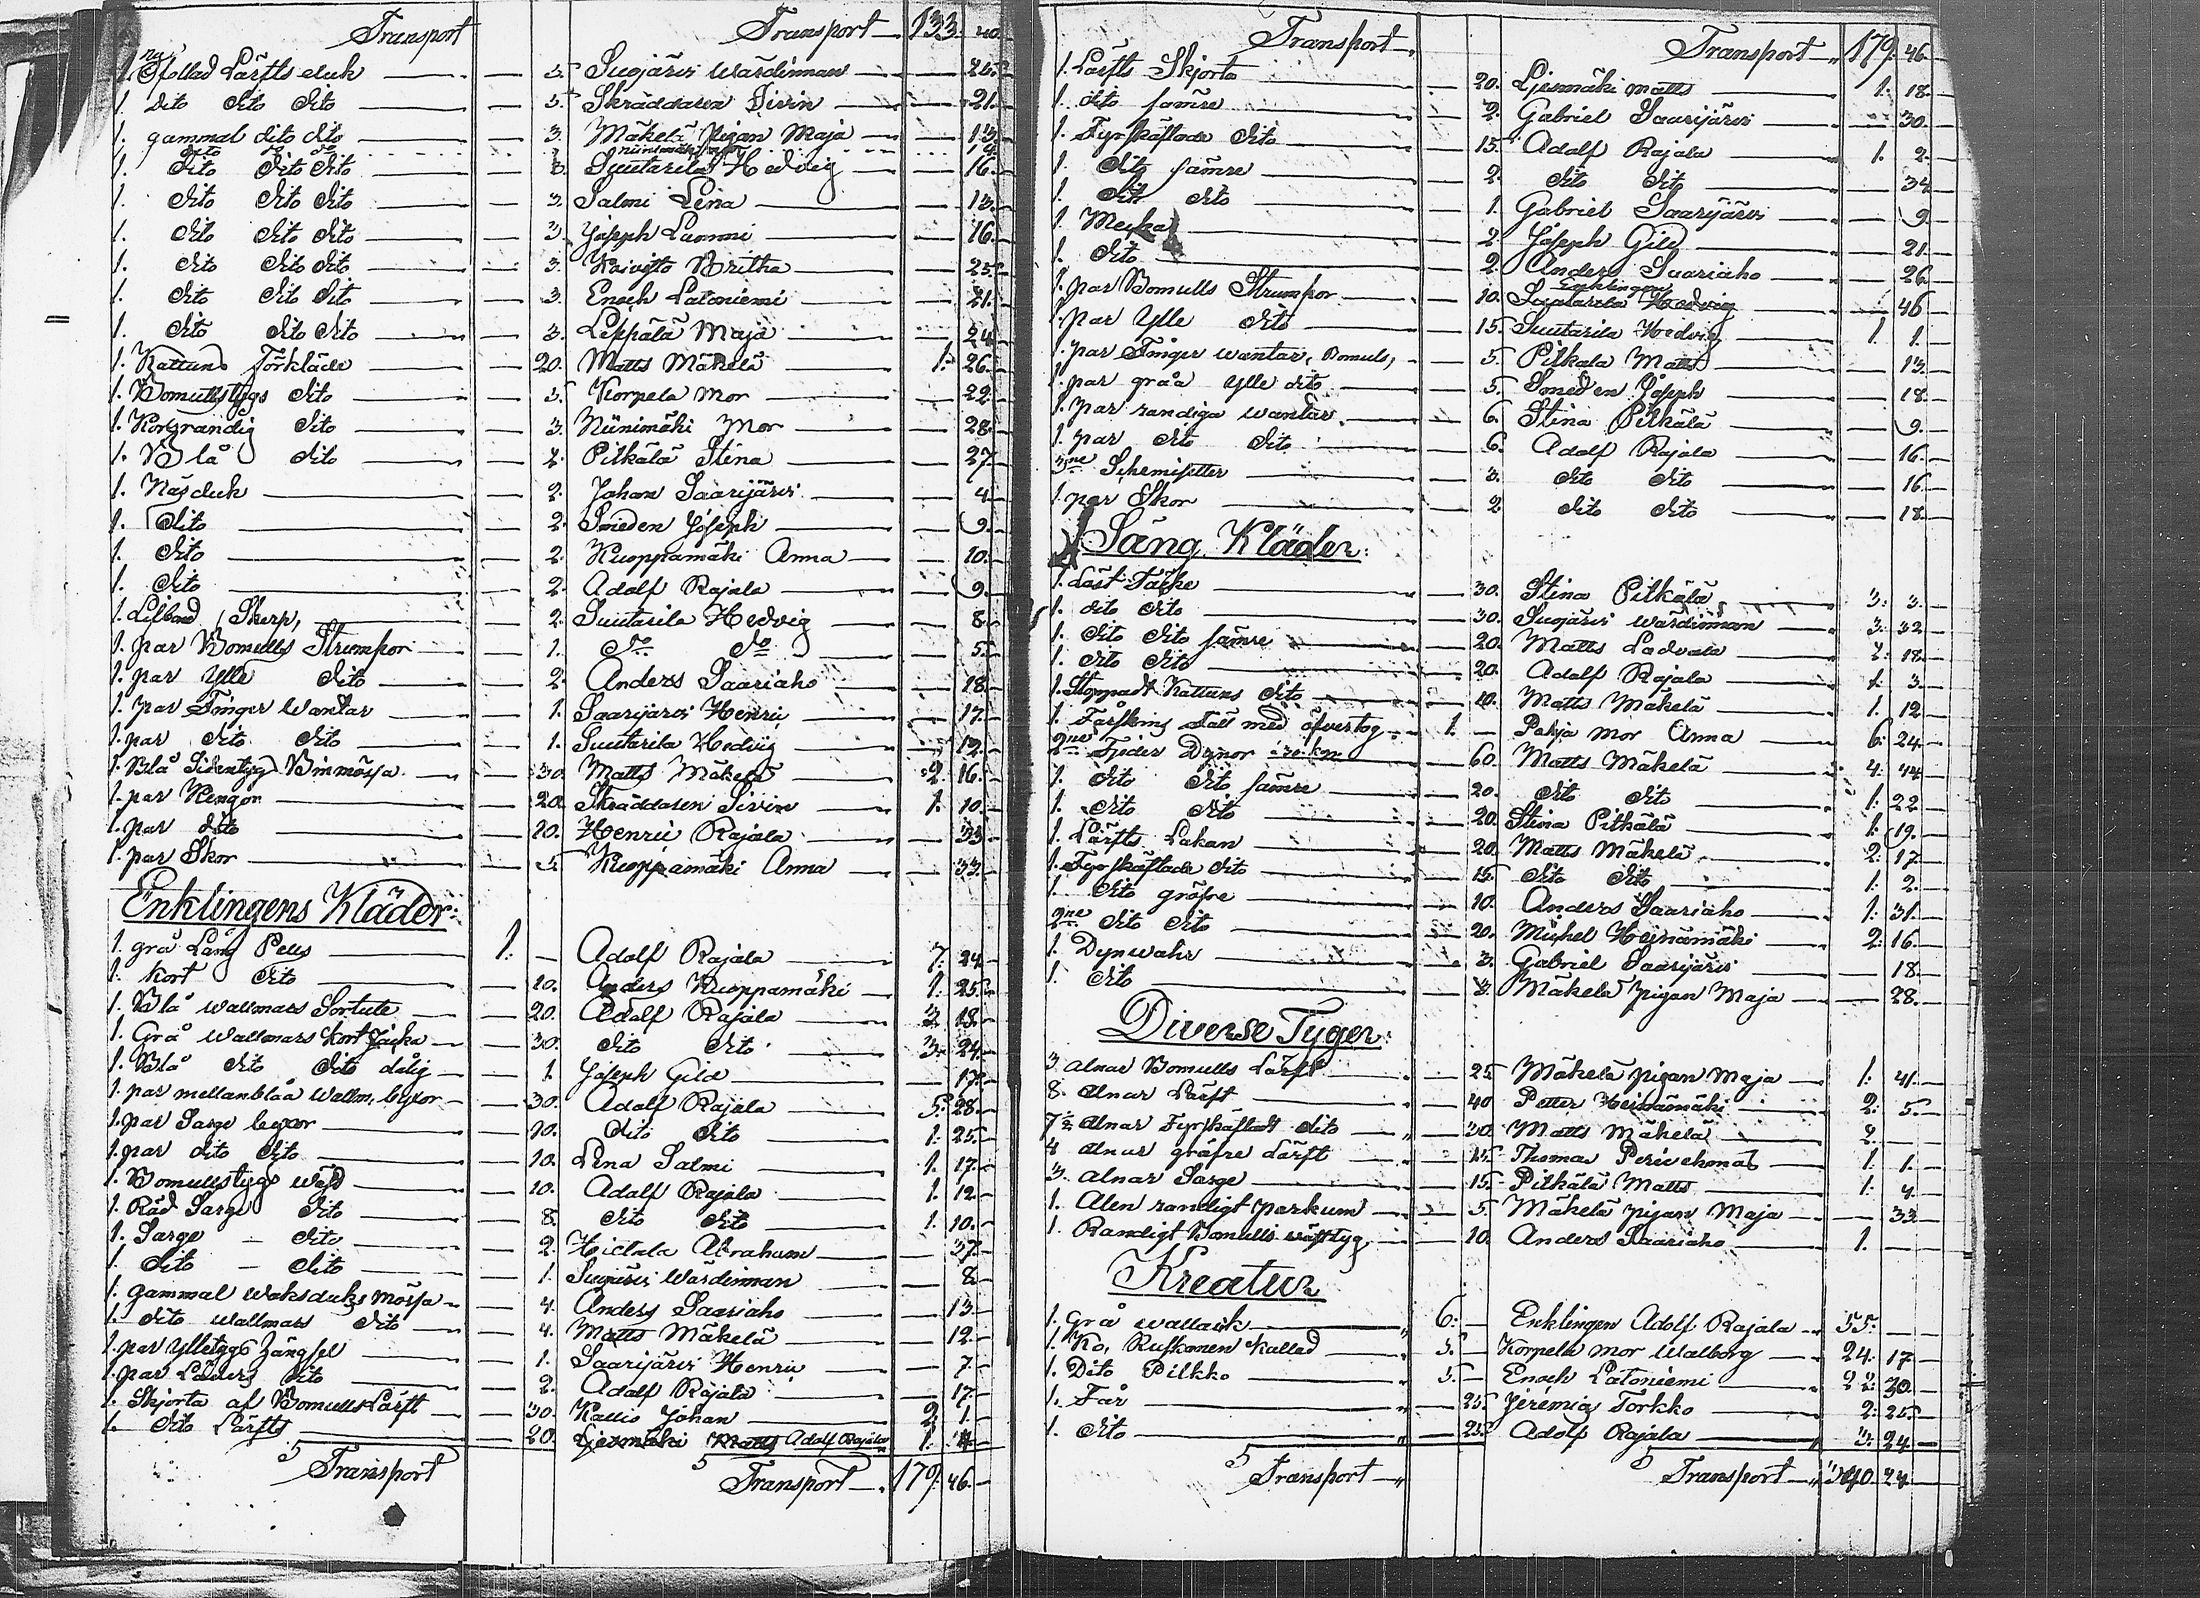 Transport Transport 133. 40.
1. ny Ofollad Lärfts duk 5. Suojärvi Wärdinnan 25.
1. dito dito dito 5. Skräddaren Sirvin 21.
1. gammal dito dito 3. Mäkelä Pigan Maja 13.
1. dito dito dito 3. Suutarila Hedvig 16.
1. dito dito dito 3. Salmi Lena 13.
1. dito dito dito 3. Joseph Lammi 16.
1. dito dito dito 3. Koivisto Britha 25.
1. dito dito dito 3. Enoch Latoniemi 21.
1. dito dito dito 3. Leppälä Maja 24.
1. Kattuns Förkläde 20. Matts Mäkelä 1. 26.
1. Bomullstygs dito 5. Korpela Mor 22.
1. Korgrandig dito 3. Niinimäki Mor 28.
1. Blå dito Pitkälä Stina 27.
1. Näsduk 2. Johan Saarijärvi 4.
1. Dito 2. Smeden Joseph 9.
1. dito 2. Kuoppamäki Anna 10.
1. dito 2. Adolf Rajala 9.
1. Lifband, Skerp, 2. Suutarila Hedvig 8.
1. par Bomulls Strumpor 1. do do 5.
1. par Ylle dito 2. Anders Saariaho 18.
1. par Finger Wantar 1. Saarijärvi Henric 17.
1. par dito dito 1. Suutarila Hedvig 12.
1. Blå Sidentygs Binmössa 30. Matts Mäkelä 2. 16.
1. par Kengor 20. Skräddaren Sirvin 1. 10.
1. par dito 20. Henric Rajala 33.
1. par Skor 5. Kuoppamäki Anna 33.
Enklingens Kläder:
1. grå Lång Pells 1. Adolf Rajala 7. 24.
1. kort dito 20. Anders Kuoppamäki 1. 25.
1. Blå wallmars Sortute 20. Adolf Rajala 2. 18.
1. Grå wallmars kort Jacka 30. dito dito 3. 24.
1. Blå dito dito dålig 1. Joseph Gild 17.
1. par mellanblåa Wallm. byxor 30. Adolf Rajala 5. 28.
1. par Sarge byxor 10. dito dito 1. 25.
1. par dito dito 10. Lena Salmi 1. 17.
1. Bomullstygs wäst 10. Adolf Rajala 1. 12.
1. Röd Sarge dito 8. dito dito 1. 10.
1. Sarge dito 2. Hietala Abraham 37.
1. dito dito 1. Suojärvi Wärdinnan 8.
1. gammal waksduks mössa 4. Anders Saariaho 13.
1. dito wallmars dito 4. Matts Mäkelä 12.
1. par Ylletygs hängsel 1. Saarijärvi Henric 7.
1. par Läders dito 2. Adolf Rajala 17.
1. Skjorta af Bomulls Lärft 30. Kallio Johan 2. 1.
1. dito Lärfts 20. Liesmäki Matts Adolf Rajala 1. 4.
Transport Transport 179. 46.
Transport Transport 179. 46.
1. Lärfts Skjorta 20. Liesmäki Matts 1. 18.
1. dito sämre 2. Gabriel Saarijärvi 30.
1. Fyrskäftade dito 15. Adolf Rajala 1. 2.
1. dito sämre 2. dito dito 34.
1. dito dito 1. Gabriel Saarijärvi 9.
1. 2. Joseph Gild 21.
1. dito 2. Anders Saariaho 26.
1. par Bomulls Strumpor 10. Enklingen Suutarila Hedvig 46.
1. par Ylle dito 15. Suutarila Hedvig 1. 1.
1. par Finger wantar, Bomuls, 5. Pitkala Matts 13.
1. par gråa Ylle dito 5. Smeden Joseph 18.
1. par randiga wantar 6. Stina Pitkälä 9.
1. par dito dito 6. Adolf Rajala 16.
3ne Schemisetter 3. dito dito 16.
1. par Skor 2 dito dito 18.
Säng Kläder:
1. Läst Täcke 30. Stina Pitkälä 3. 3.
1. dito dito 30. Suojärvi wärdinnan 3. 32.
1. dito dito sämre 20. Matts Ladvala 18.
1. dito dito 20. Adolf Rajala 1. 3.
1. Stoppadt Kattuns dito 10. Matts Mäkelä 1. 12.
1. Fårskins Fäll med öfvertog 1. Pohja mor Anna 6. 24.
2ne Fjeder Dynor 60. Matts Mäkelä 4. 44.
1. dito dito sämre 20. dito dito 1. 22.
1. dito dito 20. Stina Pitkälä 1. 19.
1. Lärfts Lakan 20. Matts Mäkelä 2. 17.
1. Fyrskäftade dito 15. dito dito 1. 2.
1. dito gröfre 10. Anders Saariaho 1. 31.
2ne dito dito 20. Michel Heinämäki 2. 16.
1. Dynwahr 3. Gabriel Saarijärvi 18.
1. dito 3. Mäkelä pigan Maja 28.
Diverse Tyger:
3. alnar Bomulls Lärft 25. Mäkelä pigan Maja 1. 41.
8. alnar Lärft 40 Petter Heinämäki 2. 5.
7½ alnar Fyrskäftadt dito 30. Matts Mäkelä 2.
4 alnar gröfre Lärft 15. Thomas 1. 1.
3. alnar Sarge 15. Pitkälä Matts 1. 4.
1. Alen randigt parkum 5. Mäkelä pigan Maja 33.
1. Randigt Bomulls wästtyg 10. Anders Saariaho 1.
Kreatur
1. Grå wallack 6. Enklingen Adolf Rajala 55.
1. Ko, Ruskonen kallad 5. Korpela mor Walborg 24. 17.
1. Dito Pilkko 5. Enoch Latoniemi 22. 30.
1. Får 25. Jeremias Torkko 2. 25.
1. dito 25. Adolf Rajala 3. 24.
Transport Transport 340. 24.